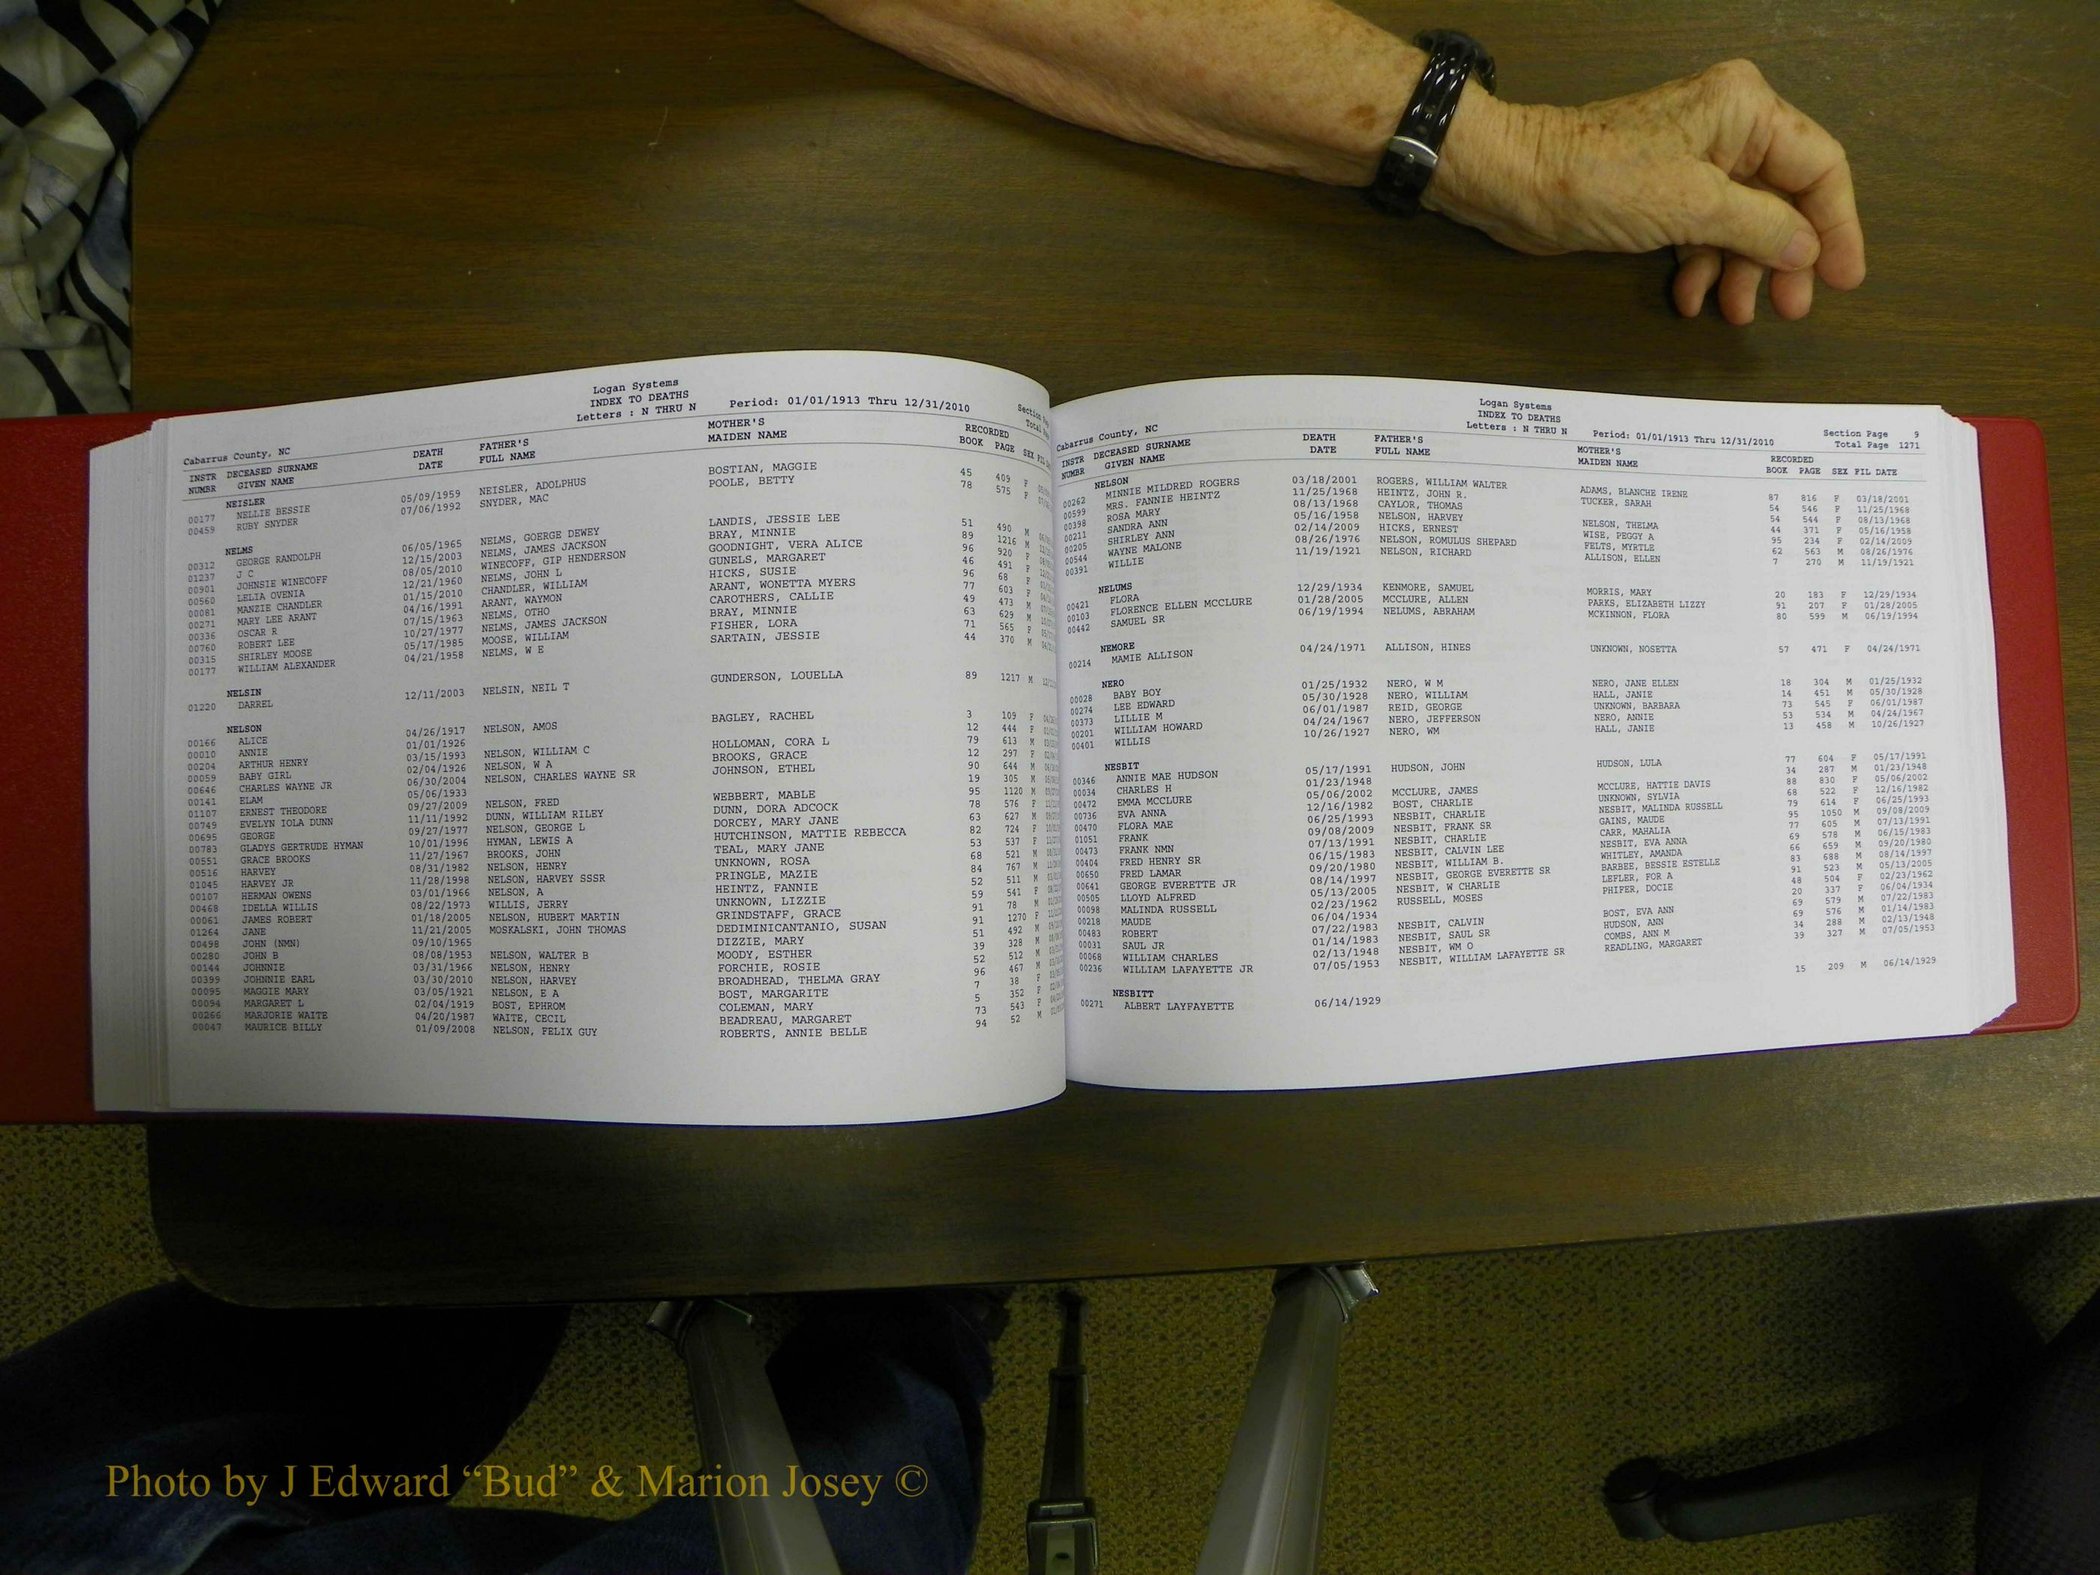 Logan Systems
INDEX TO DEATHS
Letters : N THRU N Period: 01/01/1913 Thru 12/31/2010
Cabarrus County, NC
INSTR DECEASED SURNAME DEATH FATHER'S MOTHER'S RECORDED
NUMBR GIVEN NAME DATE FULL NAME MAIDEN NAME BOOK PAGE SEX FIL
NEISLER
00177 NELLIE BESSIE 05/09/1959 NEISLER, ADOLPHUS BOSTIAN, MAGGIE 45 409 F
00459 RUBY SNYDER 07/06/1992 SNYDER, MAC POOLE, BETTY 78 575 F
NELMS
00312 GEORGE RANDOLPH 06/05/1965 NELMS, GOERGE DEWEY LANDIS, JESSIE LEE 51 490 M
01237 J C 12/15/2003 NELMS, JAMES JACKSON BRAY, MINNIE 89 1216 M
00901 JOHNSIE WINECOFF 08/05/2010 WINECOFF, GIP HENDERSON GOODNIGHT, VERA ALICE 96 920 F
00560 LELIA OVENIA 12/21/1960 NELMS, JOHN L GUNELS, MARGARET 46 491 F
00081 MANZIE CHANDLER 01/15/2010 CHANDLER, WILLIAM HICKS, SUSIE 96 68 F
00271 MARY LEE ARANT 04/16/1991 ARANT, WAYMON ARANT, WONETTA MYERS 77 603 F
00336 OSCAR R 07/15/1963 NELMS, OTHO CAROTHERS, CALLIE 49 473 M
00760 ROBERT LEE 10/27/1977 NELMS, JAMES JACKSON BRAY, MINNIE 63 629 M
00315 SHIRLEY MOOSE 05/17/1985 MOOSE, WILLIAM FISHER, LORA 71 565 F
00177 WILLIAM ALEXANDER 04/21/1958 NELMS, W E SARTAIN, JESSIE 44 370 M
NELSIN
01220 DARREL 12/11/2003 NELSIN, NEIL T GUNDERSON, LOUELLA 89 1217 M
NELSON
00166 ALICE 04/26/1917 NELSON, AMOS BAGLEY, RACHEL 3 109 F
00010 ANNIE 01/01/1926 12 444 F
00204 ARTHUR HENRY 03/15/1993 NELSON, WILLIAM C HOLLOMAN, CORA L 79 613 M
00059 BABY GIRL 02/04/1926 NELSON, W A BROOKS, GRACE 12 297 F
00646 CHARLES WAYNE JR 06/30/2004 NELSON, CHARLES WAYNE SR JOHNSON, ETHEL 90 644 M
00141 ELAM 05/06/1933 19 305 M
01107 ERNEST THEODORE 09/27/2009 NELSON, FRED WEBBERT, MABLE 95 1120 M
00749 EVELYN IOLA DUNN 11/11/1992 DUNN, WILLIAM RILEY DUNN, DORA ADCOCK 78 576 F
00695 GEORGE 09/27/1977 NELSON, GEORGE L DORCEY, MARY JANE 63 627 M
00783 GLADYS GERTRUDE HYMAN 10/01/1996 HYMAN, LEWIS A HUTCHINSON, MATTIE REBECCA 82 724 F
00551 GRACE BROOKS 11/27/1967 BROOKS, JOHN TEAL, MARY JANE 53 537 F
00516 HARVEY 08/31/1982 NELSON, HENRY UNKNOWN, ROSA 68 521 M
01045 HARVEY JR 11/28/1998 NELSON, HARVEY SSSR PRINGLE, MAZIE 84 767 M
00107 HERMAN OWENS 03/01/1966 NELSON, A HEINTZ, FANNIE 52 511 M
00468 IDELLA WILLIS 08/22/1973 WILLIS, JERRY UNKNOWN, LIZZIE 59 541 F
00061 JAMES ROBERT 01/18/2005 NELSON, HUBERT MARTIN GRINDSTAFF, GRACE 91 78 M
01264 JANE 11/21/2005 MOSKALSKI, JOHN THOMAS DEDIMINICANTANIO, SUSAN 91 1270 F
00498 JOHN (NMN) 09/10/1965 DIZZIE, MARY 51 492 M
00280 JOHN B 08/08/1953 NELSON, WALTER B MOODY, ESTHER 39 328 M
00144 JOHNNIE 03/31/1966 NELSON, HENRY FORCHIE, ROSIE 52 512 M
00399 JOHNNIE EARL 03/30/2010 NELSON, HARVEY BROADHEAD, THELMA GRAY 96 467 M
00095 MAGGIE MARY 03/05/1921 NELSON, E A BOST, MARGARITE 7 38 F
00094 MARGARET L 02/04/1919 BOST, EPHROM COLEMAN, MARY 5 352 F
00266 MARJORIE WAITE 04/20/1987 WAITE, CECIL BEADREAU, MARGARET 73 543 F
00047 MAURICE BILLY 01/09/2008 NELSON, FELIX GUY ROBERTS, ANNIE BELLE 94 52 M
Logan Systems
INDEX TO DEATHS
Letters : N THRU N Period: 01/01/1913 Thru 12/31/2010
Section Page 9
Total Page 1271
Cabarrus County, NC
INSTR DECEASED SURNAME DEATH FATHER'S MOTHER'S RECORDED
NUMBR GIVEN NAME DATE FULL NAME MAIDEN NAME BOOK PAGE SEX FIL DATE
NELSON
00262 MINNIE MILDRED ROGERS 03/18/2001 ROGERS, WILLIAM WALTER ADAMS, BLANCHE IRENE 87 816 F 03/18/2001
00599 MRS. FANNIE HEINTZ 11/25/1968 HEINTZ, JOHN R. TUCKER, SARAH 54 546 F 11/25/1968
00398 ROSA MARY 08/13/1968 CAYLOR, THOMAS 54 544 F 08/13/1968
00211 SANDRA ANN 05/16/1958 NELSON, HARVEY NELSON, THELMA 44 371 F 05/16/1958
00205 SHIRLEY ANN 02/14/2009 HICKS, ERNEST WISE, PEGGY A 95 234 F 02/14/2009
00544 WAYNE MALONE 08/26/1976 NELSON, ROMULUS SHEPARD FELTS, MYRTLE 62 563 M 08/26/1976
00391 WILLIE 11/19/1921 NELSON, RICHARD ALLISON, ELLEN 7 270 M 11/19/1921
NELUMS
00421 FLORA 12/29/1934 KENMORE, SAMUEL MORRIS, MARY 20 183 F 12/29/1934
00103 FLORENCE ELLEN MCCLURE 01/28/2005 MCCLURE, ALLEN PARKS, ELIZABETH LIZZY 91 207 F 01/28/2005
00442 SAMUEL SR 06/19/1994 NELUMS, ABRAHAM MCKINNON, FLORA 80 599 M 06/19/1994
NEMORE
00214 MAMIE ALLISON 04/24/1971 ALLISON, HINES UNKNOWN, NOSETTA 57 471 F 04/24/1971
NERO
00028 BABY BOY 01/25/1932 NERO, W M NERO, JANE ELLEN 18 304 M 01/25/1932
00274 LEE EDWARD 05/30/1928 NERO, WILLIAM HALL, JANIE 14 451 M 05/30/1928
00373 LILLIE M 06/01/1987 REID, GEORGE UNKNOWN, BARBARA 73 545 F 06/01/1987
00201 WILLIAM HOWARD 04/24/1967 NERO, JEFFERSON NERO, ANNIE 53 534 M 04/24/1967
00401 WILLIS 10/26/1927 NERO, WM HALL, JANIE 13 458 M 10/26/1927
NESBIT
00346 ANNIE MAE HUDSON 05/17/1991 HUDSON, JOHN HUDSON, LULA 77 604 F 05/17/1991
00034 CHARLES H 01/23/1948 34 287 M 01/23/1948
00472 EMMA MCCLURE 05/06/2002 MCCLURE, JAMES MCCLURE, HATTIE DAVIS 88 830 F 05/06/2002
00736 EVA ANNA 12/16/1982 BOST, CHARLIE UNKNOWN, SYLVIA 68 522 F 12/16/1982
00470 FLORA MAE 06/25/1993 NESBIT, CHARLIE NESBIT, MALINDA RUSSELL 79 614 F 06/25/1993
01051 FRANK 09/08/2009 NESBIT, FRANK SR GAINS, MAUDE 95 1050 M 09/08/2009
00473 FRANK NMN 07/13/1991 NESBIT, CHARLIE CARR, MAHALIA 77 605 M 07/13/1991
00404 FRED HENRY SR 06/15/1983 NESBIT, CALVIN LEE NESBIT, EVA ANNA 69 578 M 06/15/1983
00650 FRED LAMAR 09/20/1980 NESBIT, WILLIAM B. WHITLEY, AMANDA 66 659 M 09/20/1980
00641 GEORGE EVERETTE JR 08/14/1997 NESBIT, GEORGE EVERETTE SR BARBEE, BESSIE ESTELLE 83 688 M 08/14/1997
00505 LLOYD ALFRED 05/13/2005 NESBIT, W CHARLIE LEFLER, FOR A 91 523 M 05/13/2005
00098 MALINDA RUSSELL 02/23/1962 RUSSELL, MOSES PHIFER, DOCIE 48 504 F 02/23/1962
00218 MAUDE 06/04/1934 20 337 F 06/04/1934
00483 ROBERT 07/22/1983 NESBIT, CALVIN BOST, EVA ANN 69 579 M 07/22/1983
00031 SAUL JR 01/14/1983 NESBIT, SAUL SR HUDSON, ANN 69 576 M 01/14/1983
00068 WILLIAM CHARLES 02/13/1948 NESBIT, WM O COMBS, ANN M 34 288 M 02/13/1948
00236 WILLIAM LAFAYETTE JR 07/05/1953 NESBIT, WILLIAM LAFAYETTE SR READLING, MARGARET 39 327 M 07/05/1953
NESBITT
00271 ALBERT LAYFAYETTE 06/14/1929 15 209 M 06/14/1929
Photo by J Edward “Bud” & Marion Josey ©